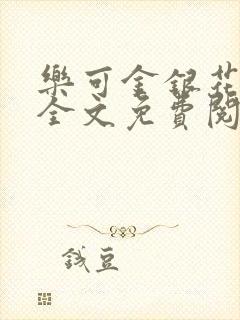 樂可金銀花
全文免費閱
錢豆